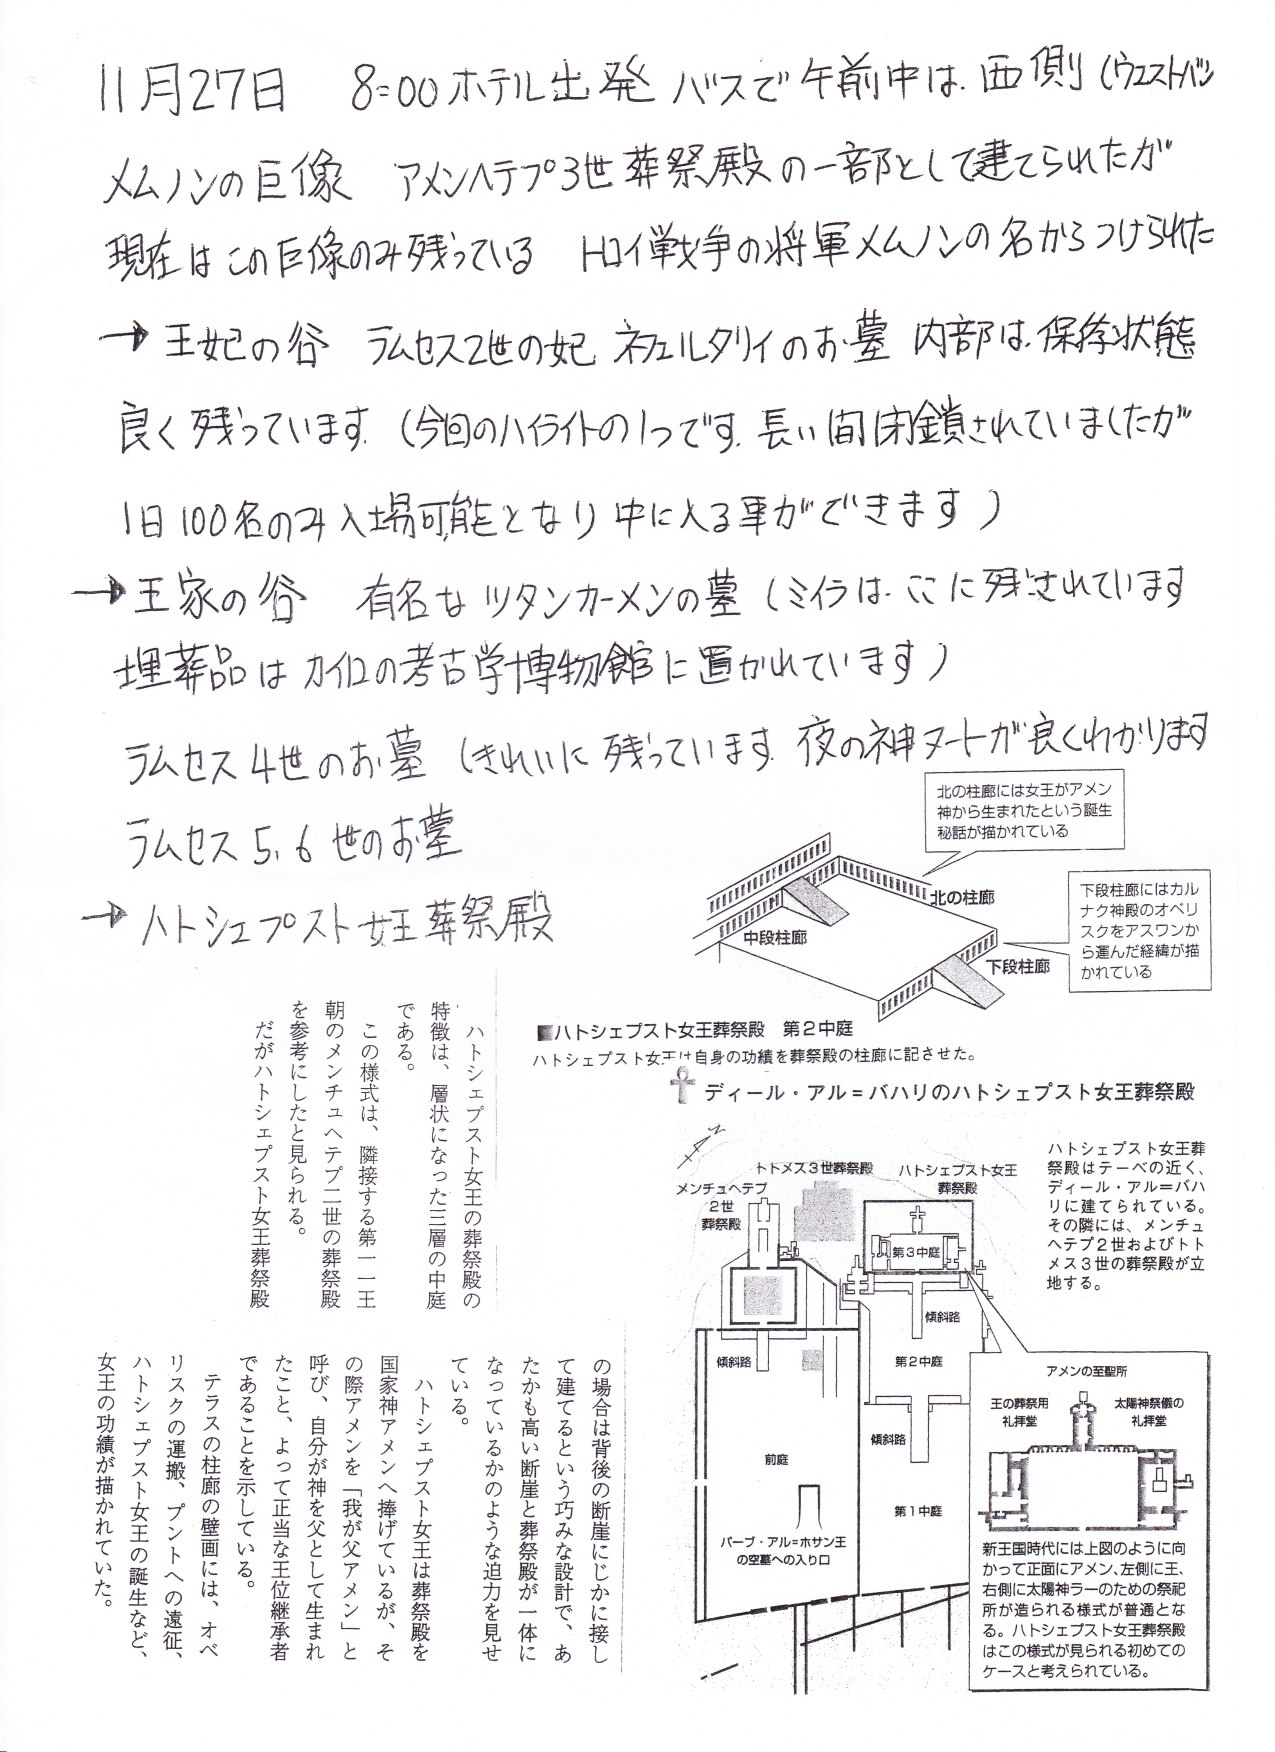 11月27日 8:00ホテル出発 バスで午前中は、西側(ウエストバン
メムノンの巨像 アメンヘテプ3世葬祭殿の一部として建てられたが
現在はこの巨像のみ残っている トロイ戦争の将軍メムノンの名からつけられた
→王妃の谷 ラムセス2世の妃 ネフェルタリイのお墓 内部は、保存状態
良く残っています。(今回のハイライトの1つです。長い間閉鎖されていましたが
1日100名のみ入場可能となり中に入る事ができます)
→王家の谷 有名なツタンカーメンの墓(ミイラは、ここに残されています
埋葬品はカイロの考古学博物館に置かれています)
ラムセス4世のお墓(きれいに残っています。夜の神ヌートが良くわかります
ラムセス5、6世のお墓
→ハトシェプスト女王葬祭殿
北の柱廊には女王がアメン
神から生まれたという誕生
秘話が描かれている
北の柱廊
中段柱廊
下段柱廊
下段柱廊にはカル
ナク神殿のオベリ
スクをアスワンか
ら運んだ経緯が描
かれている
■ハトシェプスト女王葬祭殿 第2中庭
ハトシェプスト女王は自身の功績を葬祭殿の柱廊に記させた。
ハトシェプスト女王の葬祭殿の
特徴は、層状になった三層の中庭
である。
この様式は、隣接する第一一王
朝のメンチュヘテプ二世の葬祭殿
を参考にしたと見られる。
だがハトシェプスト女王葬祭殿
の場合は背後の断崖にじかに接し
て建てるという巧みな設計で、あ
たかも高い断崖と葬祭殿が一体に
なっているかのような迫力を見せ
ている。
ハトシェプスト女王は葬祭殿を
国家神アメンへ捧げているが、そ
の際アメンを「我が父アメン」と
呼び、自分が神を父として生まれ
たこと、よって正当な王位継承者
であることを示している。
テラスの柱廊の壁画には、オベ
リスクの運搬、プントへの遠征、
ハトシェプスト女王の誕生など、
女王の功績が描かれていた。
ディール・アル=バハリのハトシェプスト女王葬祭殿
N
トトメス3世葬祭殿
メンチュヘテプ
2世
葬祭殿
ハトシェプスト女王
葬祭殿
第3中庭
傾斜路
第2中庭
傾斜路
傾斜路
前庭
第1中庭
バーブ・アル=ホサン王
の空墓への入り口
ハトシェプスト女王葬
祭殿はテーベの近く、
ディール・アル=バハ
リに建てられている。
その隣には、メンチュ
ヘテプ2世およびトト
メス3世の葬祭殿が立
地する。
アメンの至聖所
王の葬祭用
礼拝堂
太陽神祭儀の
礼拝堂
新王国時代には上図のように向
かって正面にアメン、左側に王、
右側に太陽神ラーのための祭祀
所が造られる様式が普通とな
る。ハトシェプスト女王葬祭殿
はこの様式が見られる初めての
ケースと考えられている。